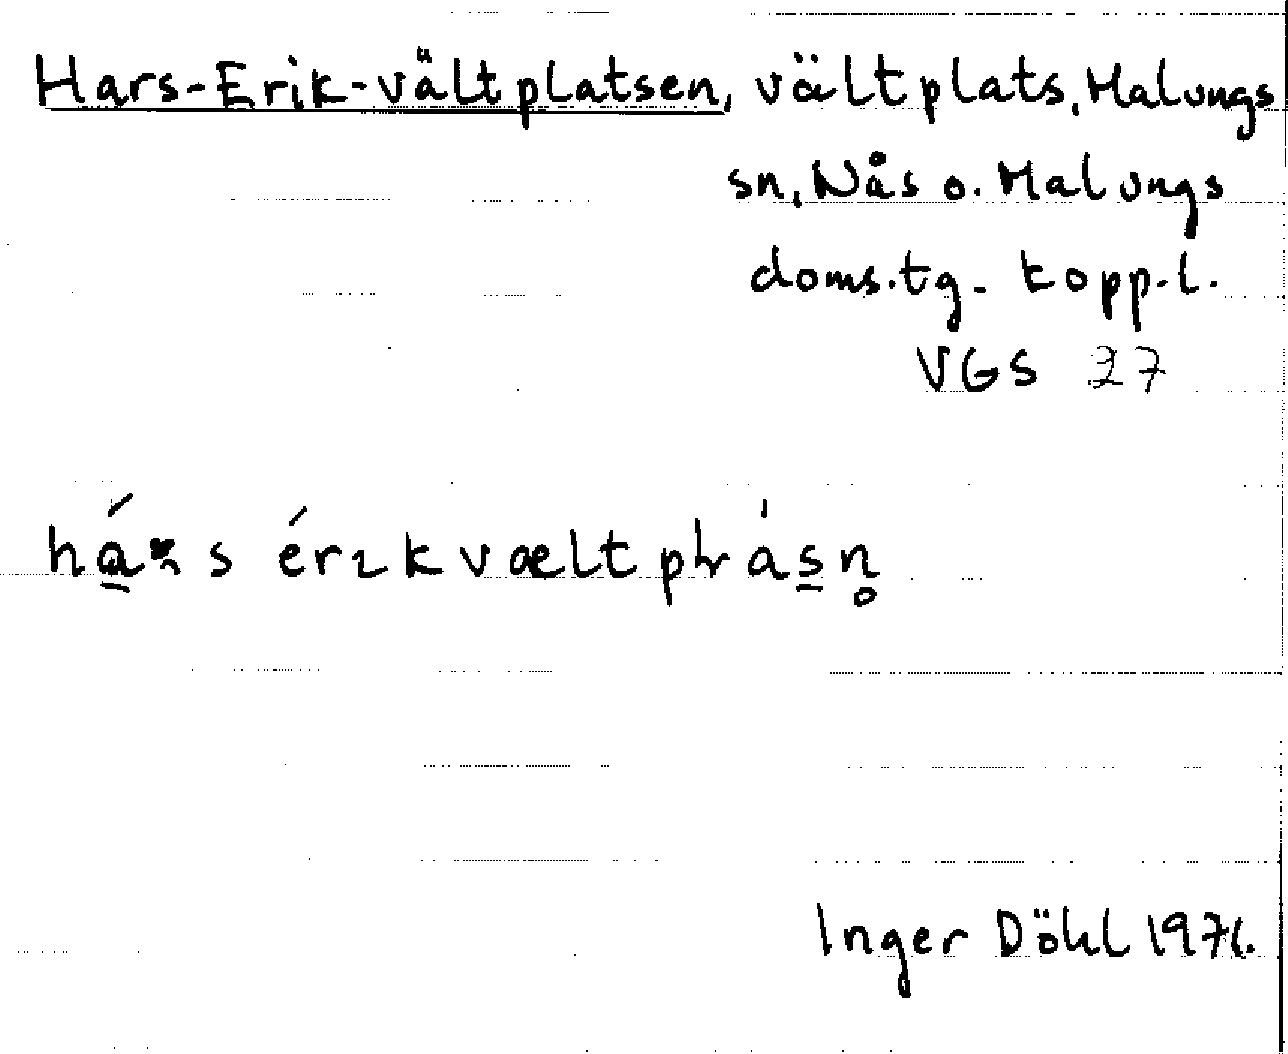 Hars-Erik-vältplatsen, vältplats, Malungs
sn, Nås o. Malungs
doms.tg. kopp.l.
VGS 27
érɿk væltplrásn̥
Inger Döhl 1976.